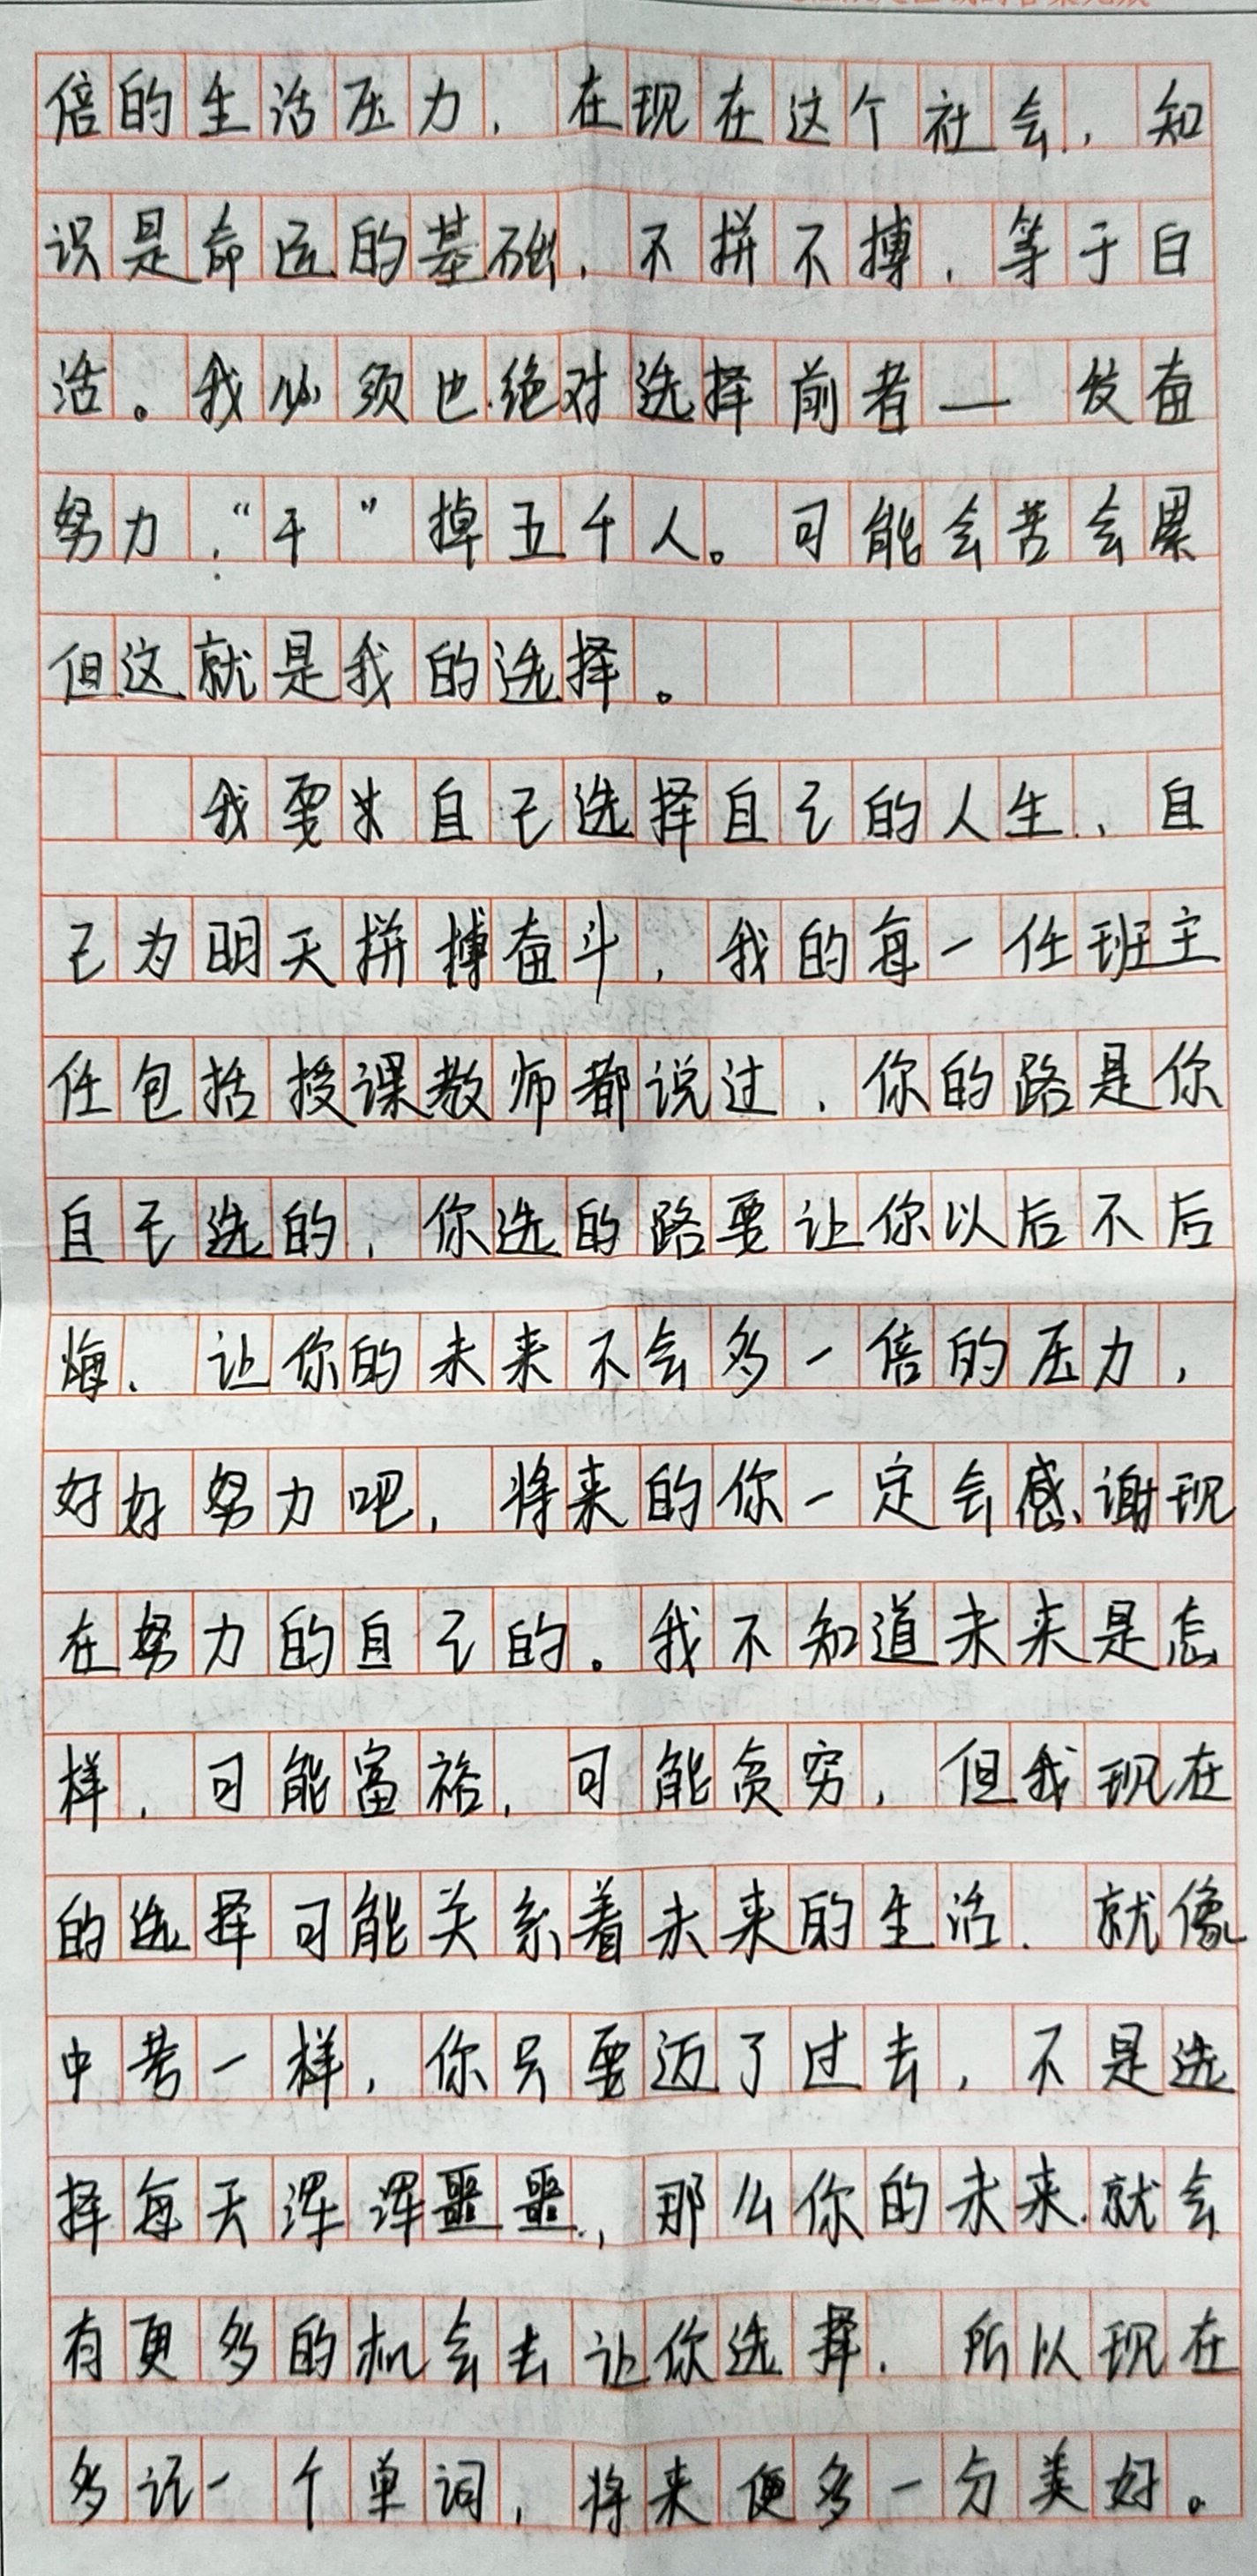 倍的生活压力，在现在这个社会，知
识是命运的基础，不拼不搏，等于白
活。我必须也绝对选择前者——发奋
努力，“干”掉五千人。可能会苦会累
但这就是我的选择。
我要求自己选择自己的人生，自
己为明天拼搏奋斗，我的每一任班主
任包括授课教师都说过，你的路是你
自己选的，你选的路要让你以后不后
悔、让你的未来不会多一倍的压力，
好好努力吧，将来的你一定会感谢现
在努力的自己的。我不知道未来是怎
样，可能富裕，可能贪穷，但我现在
的选择可能关系着未来的生活．就像
中考一样，你只要迈了过去，不是选
择每天浑浑噩噩，那么你的未来就会
有更多的机会去让你选择．所以现在
多记一个单词，将来便多一分美好。